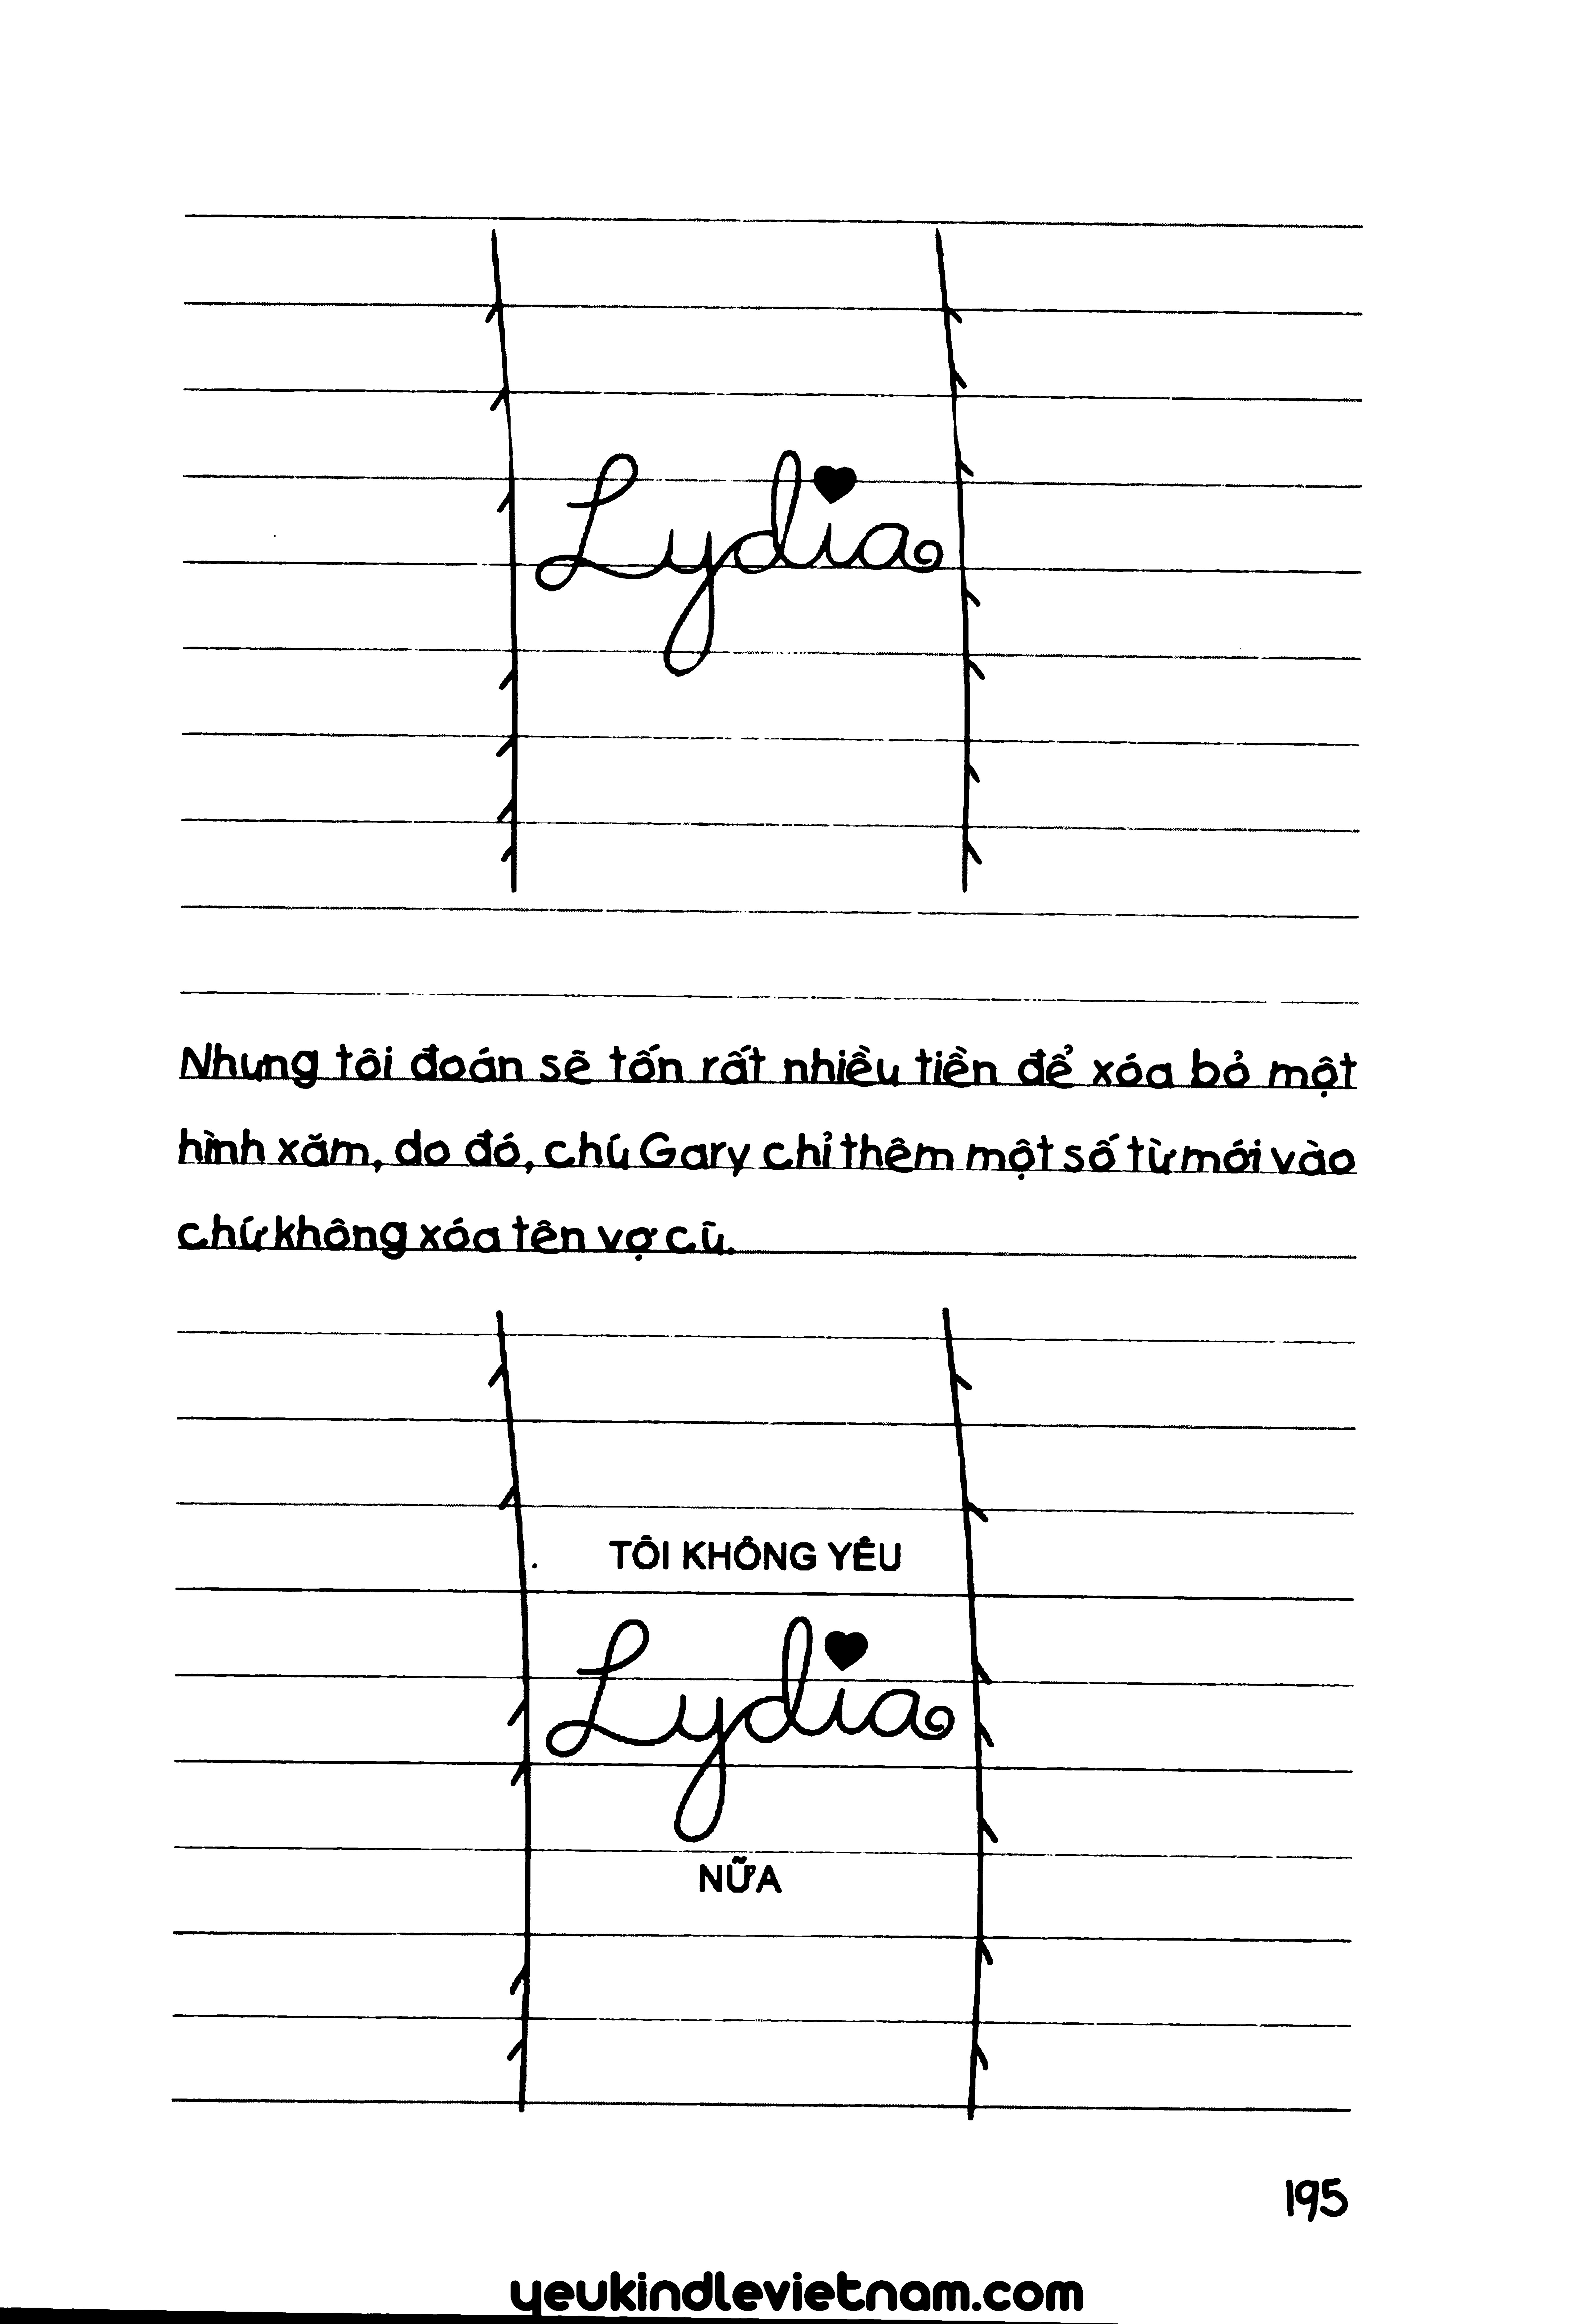 Lydia
Nhưng tôi đoán sẽ tốn rất nhiều tiền để xóa bỏ một
hình xăm, do đó, chú Gary chỉ thêm một số từ mới vào
chứ không xóa tên vợ cũ.
TÔI KHÔNG YÊU
Lydia
NỮA
195
yeukindlevietnam.com